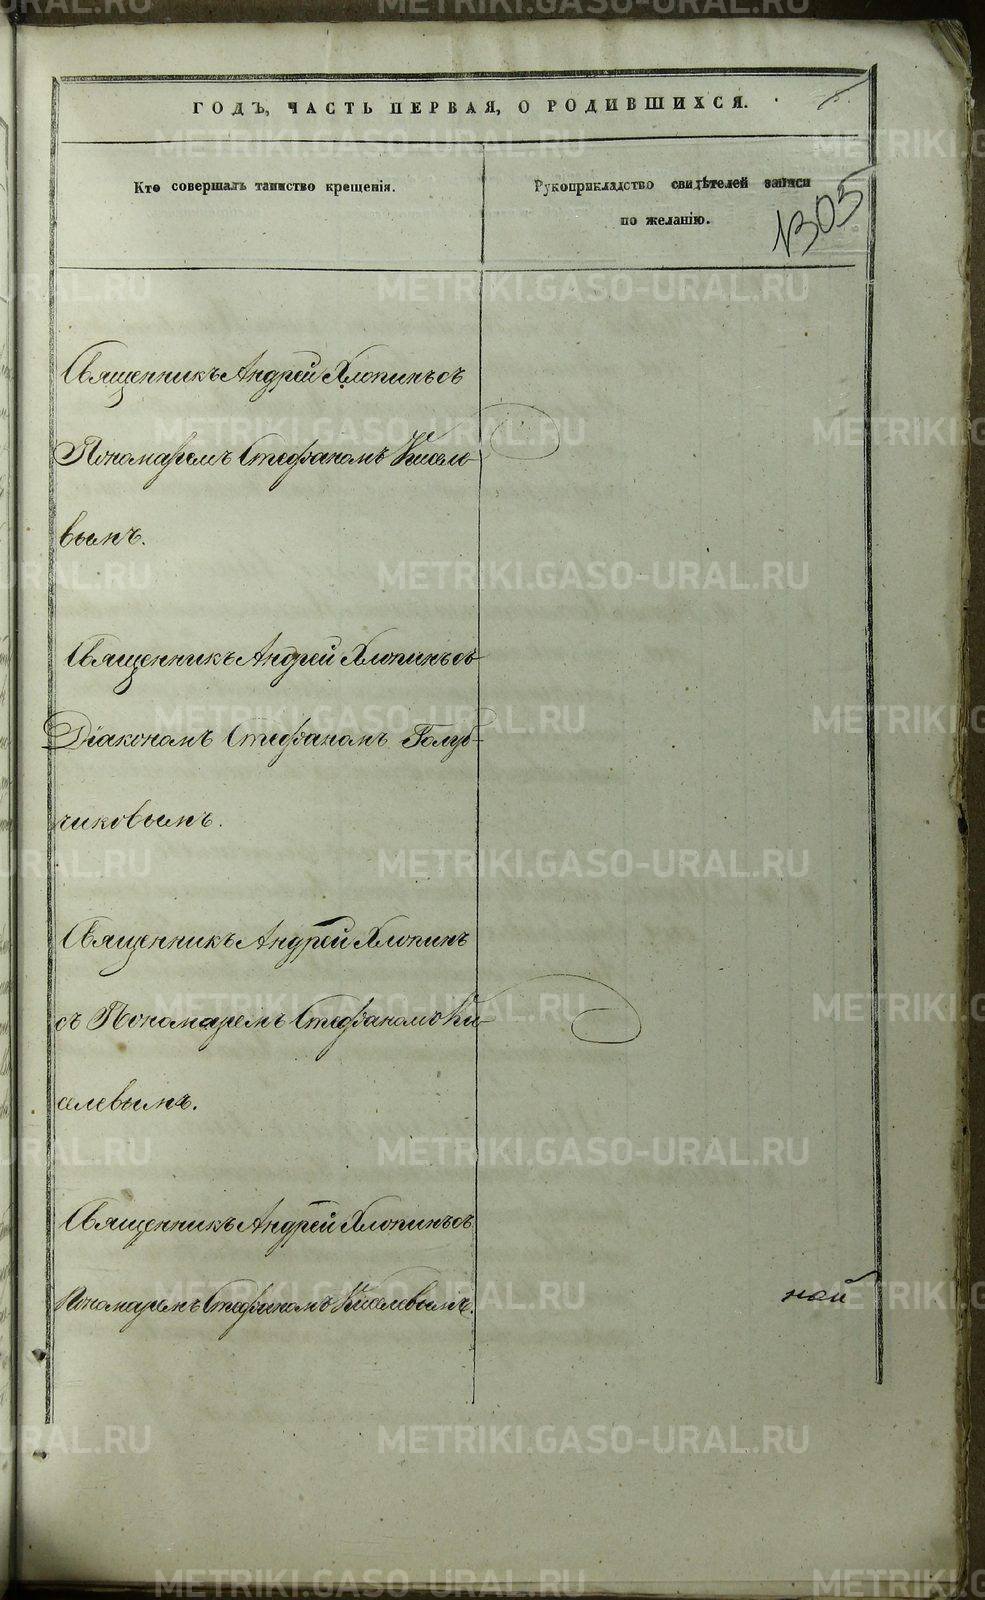 ГОДЪ, ЧАСТЬ ПЕРВАЯ, О РОДИВШИХСЯ.
Кто совершалъ таинство крещенія.
Рукоприкладство свидѣтелей записи
по желанію.
1305
Священникъ Андрей Хлопинъ съ
Пономаремъ Стефаномъ Кисле-
вымъ.
Священникъ Андрей Хлопинъ съ
Діакономъ Стефаномъ Голуб-
чиковымъ.
Священникъ Андрей Хлопинъ
съ Пономаремъ Стефаномъ Ки-
селевымъ.
Священникъ Андрей Хлопинъ съ
Пономаремъ Стефаномъ Киселевымъ.
ной
METRIKI.GASO-URAL.RU